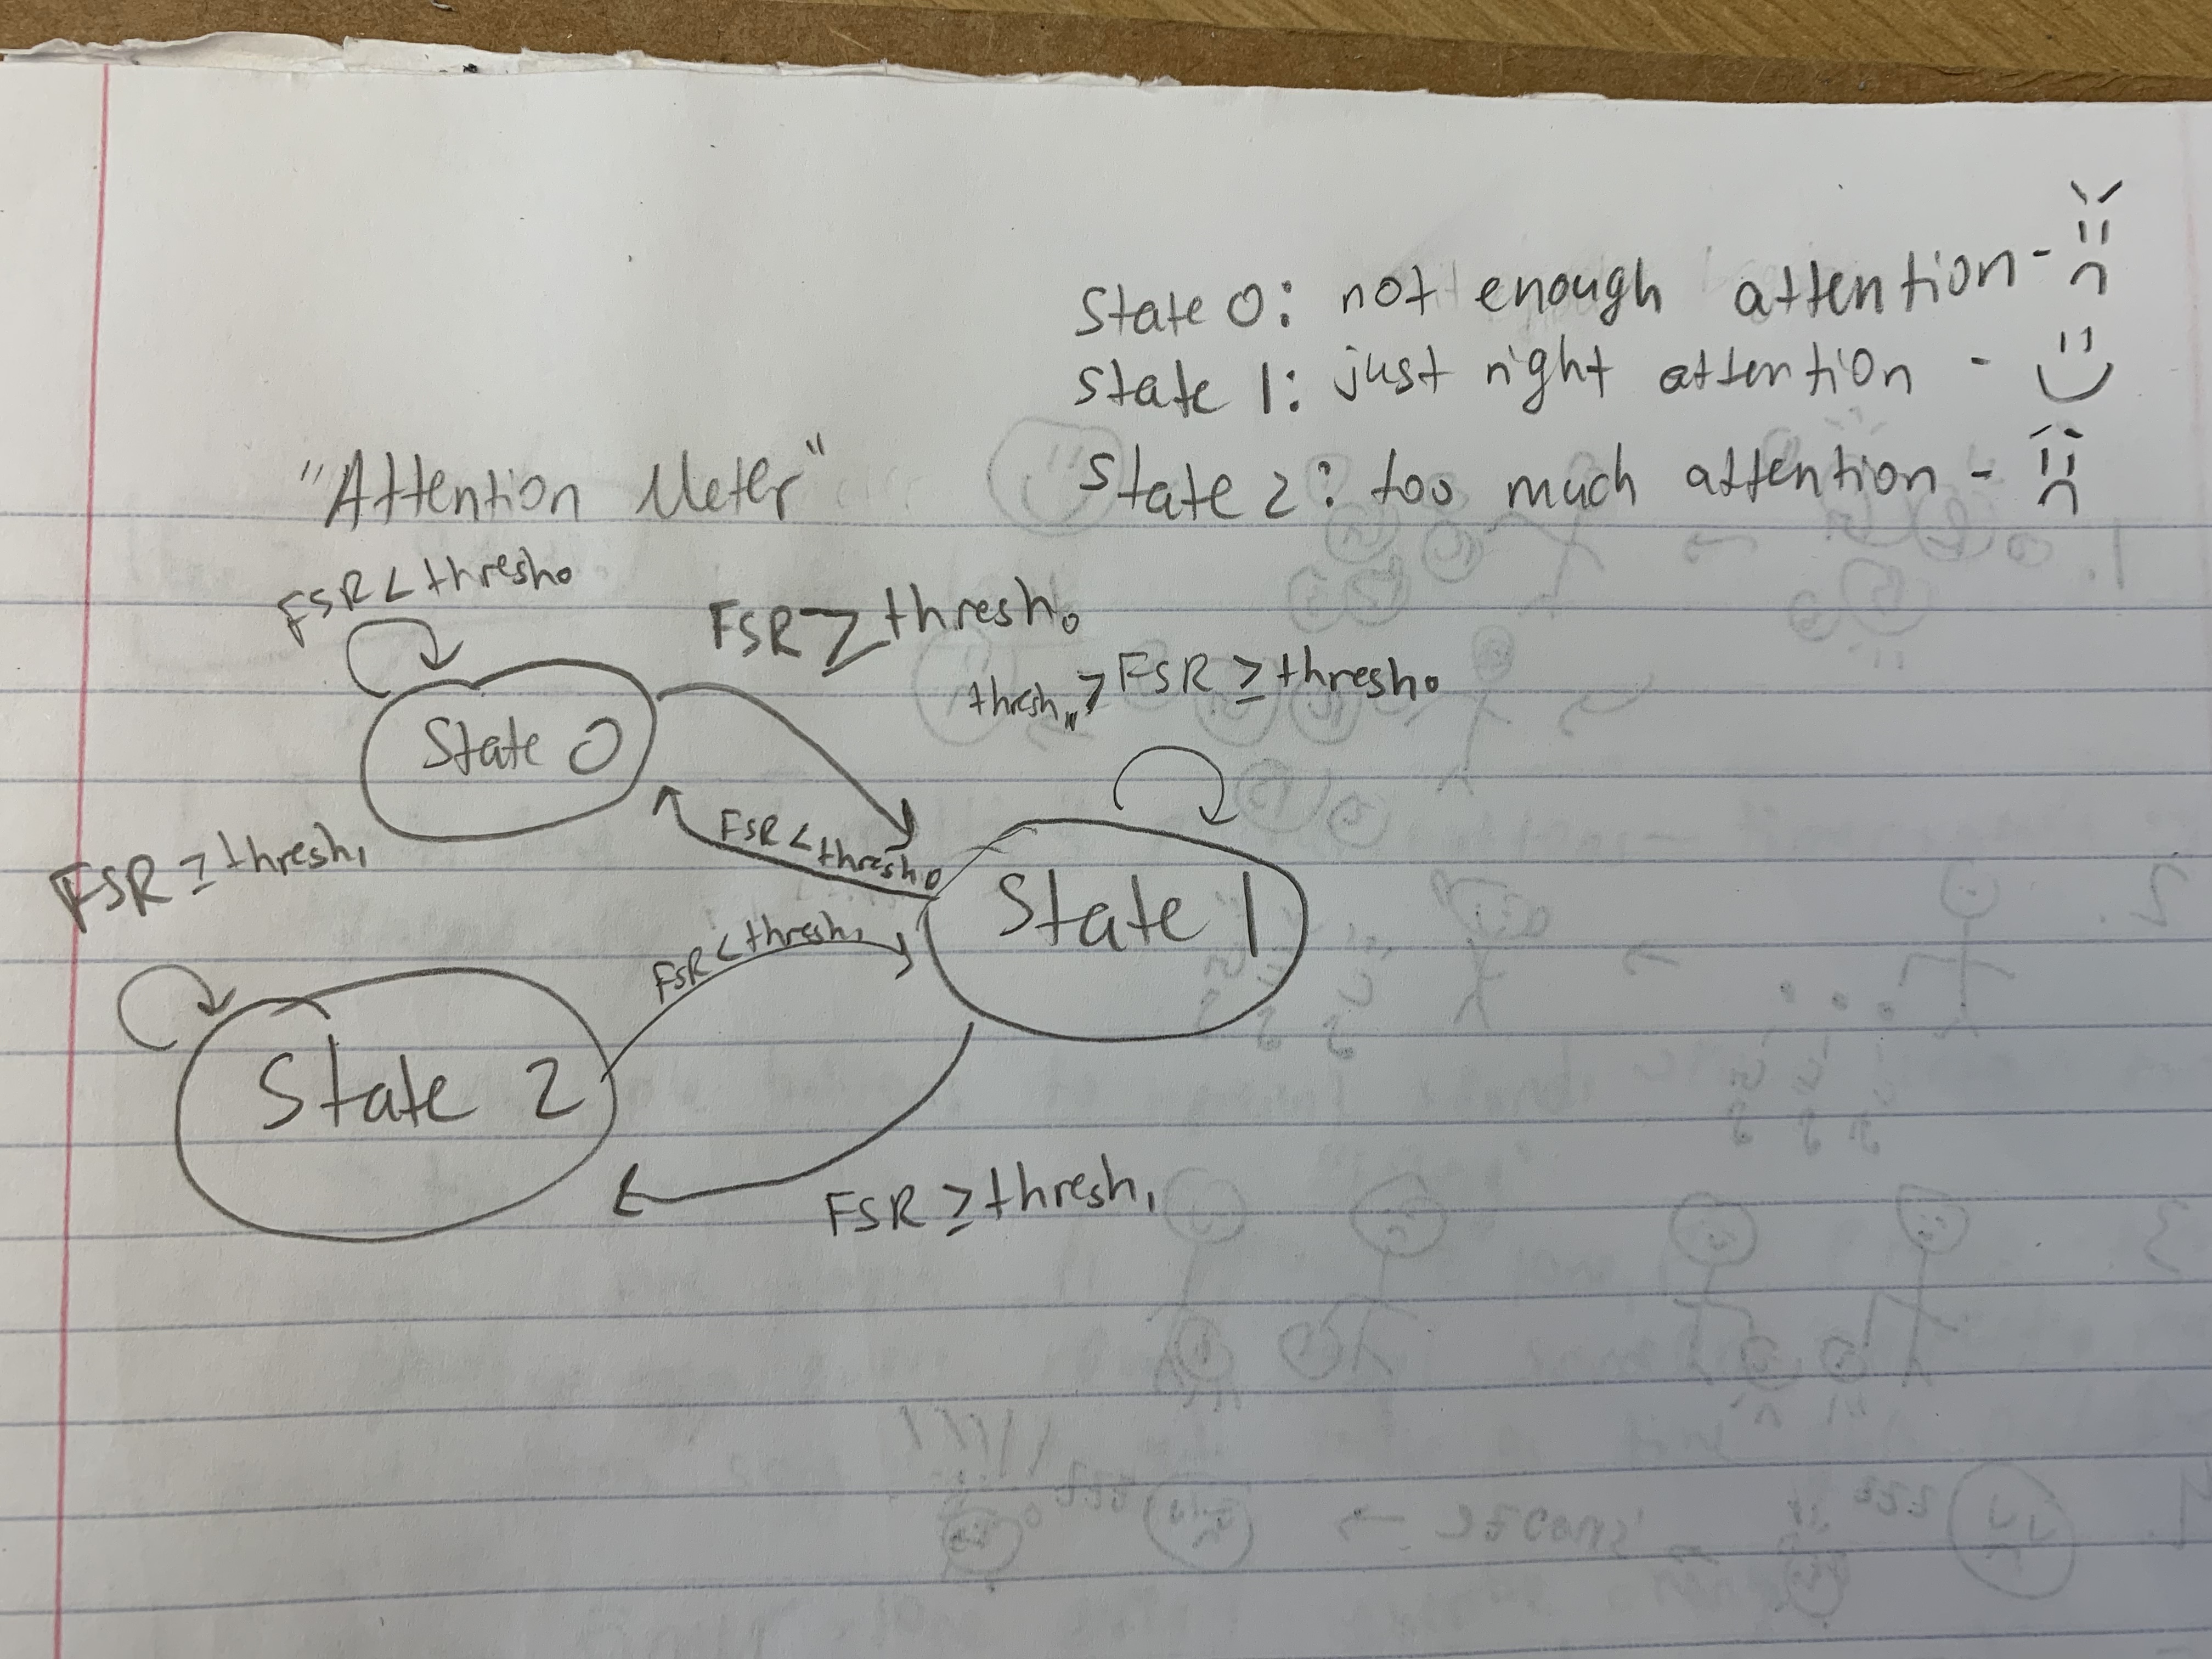 State 0: not enough attention -
State 1: just right attention -
State 2: too much attention -
"Attention Meter"
FSR < thresh₀
FSR ≥ thresh₀
thresh₁ > FSR ≥ thresh₀
State 0
FSR < thresh₀
FSR ≥ thresh₁
State 1
FSR < thresh₁
State 2
FSR ≥ thresh₁